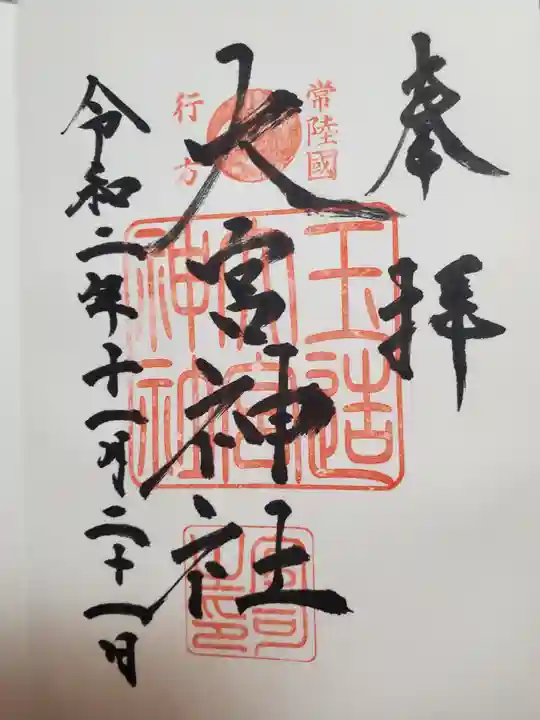 奉拝
常陸國
行方
大宮神社
玉造
大宮
神社
宮司
之印
令和二年十一月二十一日